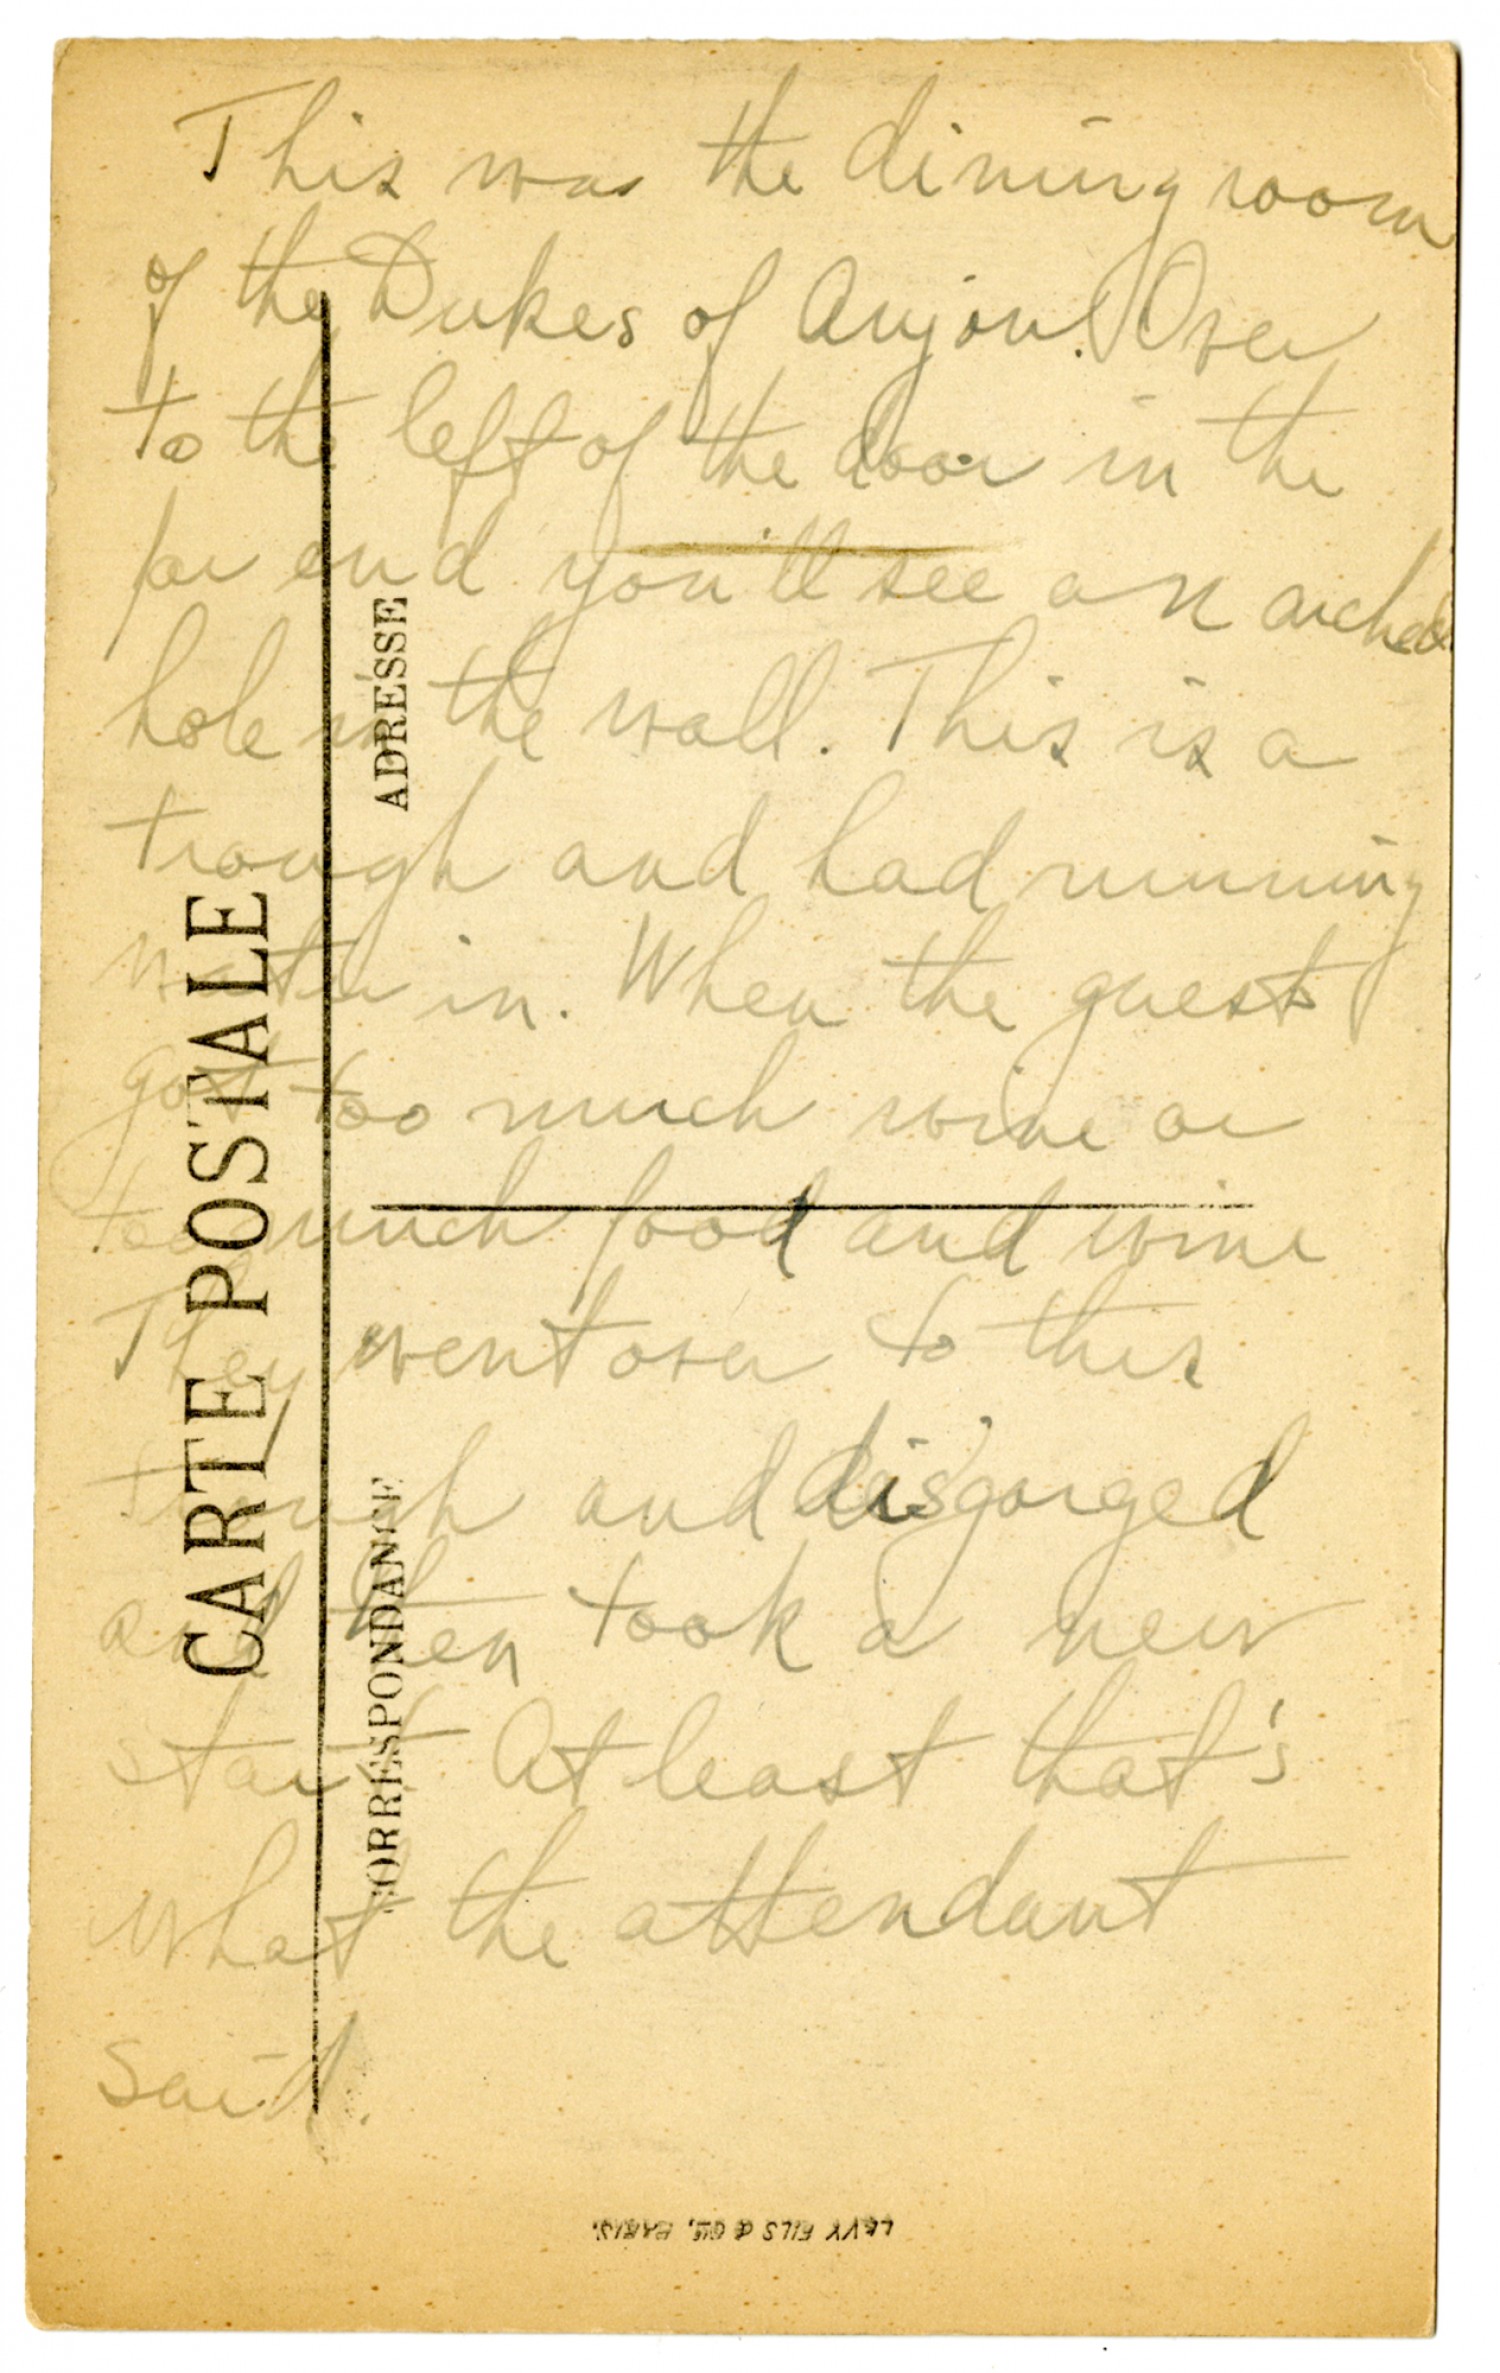 This was the dining room
of the Dukes of Anjou. Over
to the left of the door in the
far end you'll see an arched
hole in the wall. This is a
trough and had running
water in. When the guests
got too much wine or
too much food and wine
They went over to this
trough and disgorged
and then took a new
start. At least that's
what the attendant
said.
CARTE POSTALE
ADRESSE
CORRESPONDANCE
LEVY FILS & CIE, PARIS.